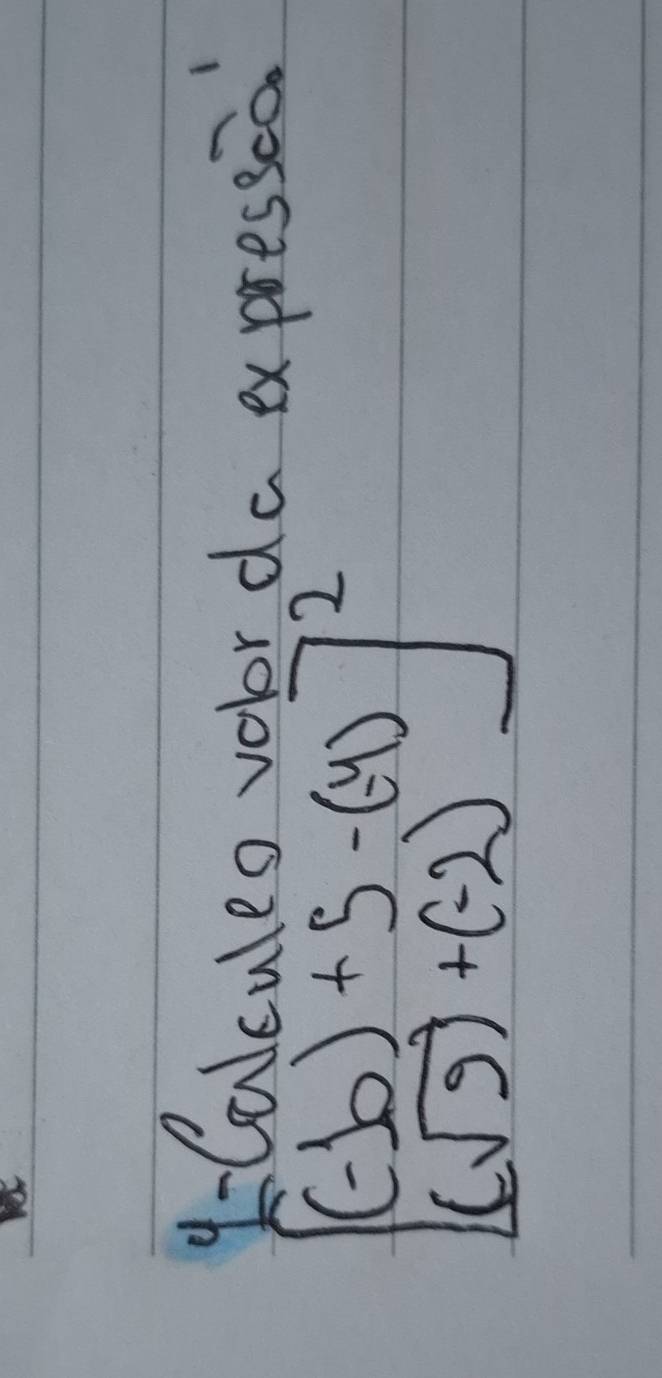 4-Calcule o valor da expressão.
[(-10) + 5 - (-4)
(√9) + (-2)]²